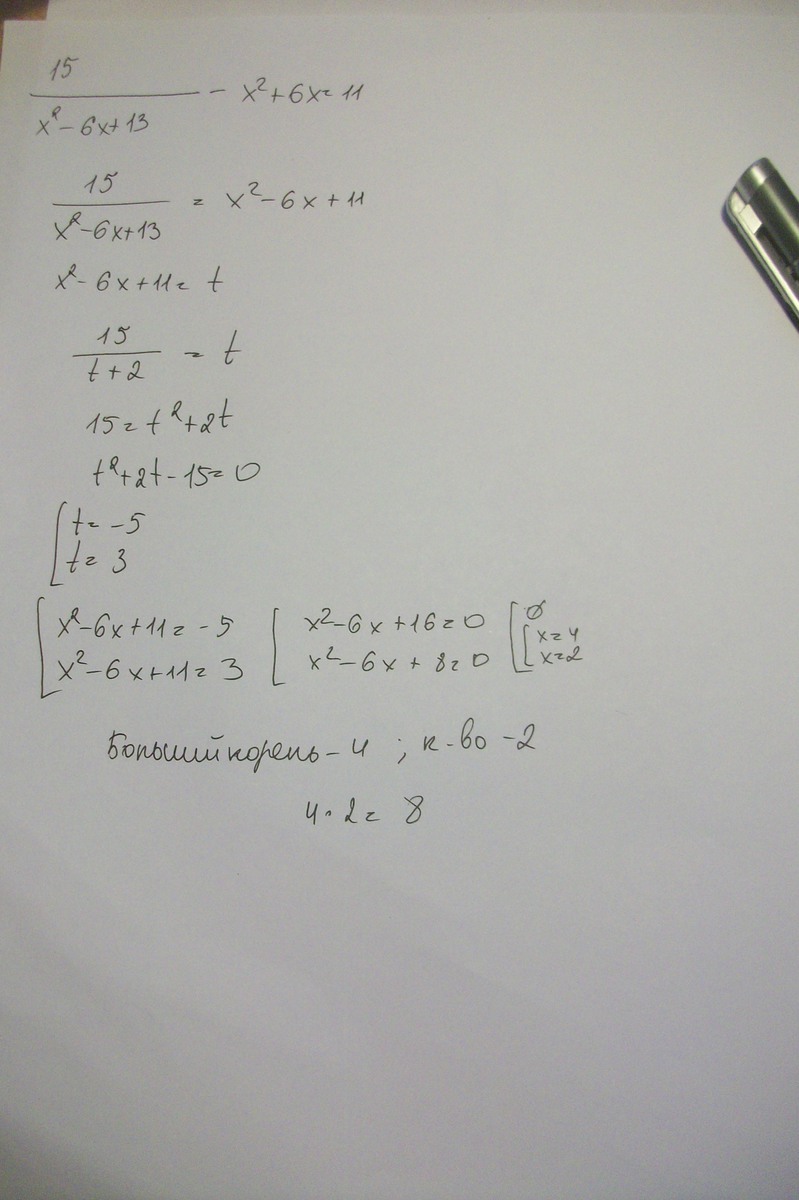 15/(x²-6x+13) - x²+6x=11
15/(x²-6x+13) = x²-6x+11
x²-6x+11= t
15/(t+2) = t
15=t²+2t
t²+2t-15=0
[t=-5
t=3
[x²-6x+11=-5 [x²-6x+16=0 [∅
x²-6x+11=3 x²-6x+8=0 [x=4
x=2
Больший корень - 4 ; к-во - 2
4·2= 8